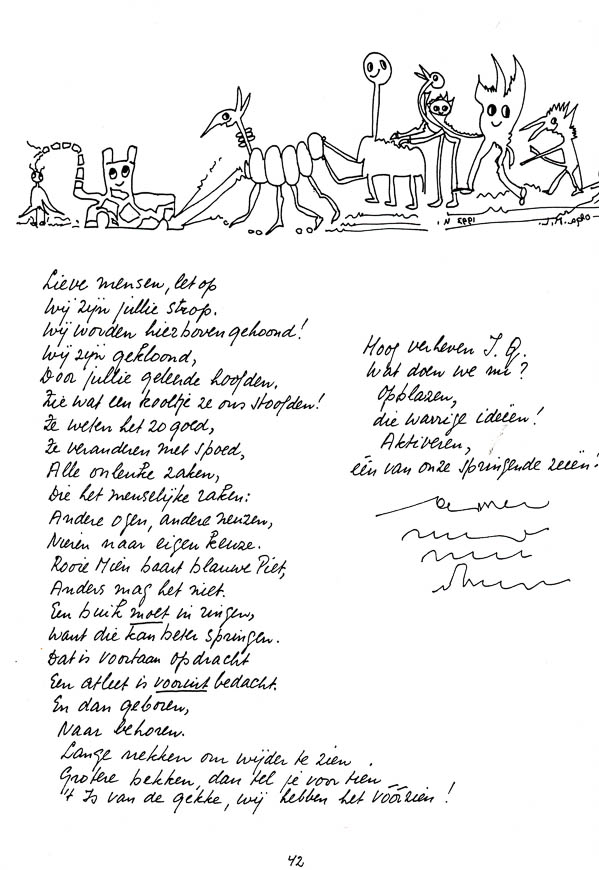 Lieve mensen, let op
Wij zijn jullie strop.
Wij worden hierboven gehoond!
Wij zijn gekloond,
Door jullie geleerde hoofden.
Zie wat een kooltje ze ons stoofden!
Ze weten het zo goed,
Ze veranderen met spoed,
Alle onleuke zaken,
Die het menselijke raken:
Andere ogen, andere neuzen,
Nieren naar eigen keuze.
Rooie Mien baart blauwe Piet,
Anders mag het niet.
Een buik moet in ringen,
Want die kan beter springen.
Dat is voortaan opdracht
Een atleet is vooruit bedacht.
En dan geboren,
Naar behoren.
Lange nekken om wijder te zien.
Grotere bekken, dan tel je voor tien
't Is van de gekke, wij hebben het vóórzien!
Hoog verheven I.Q.
Wat doen we nu?
Opblazen,
die warrige ideëen!
Aktiveren,
één van onze springende zeeën!
42